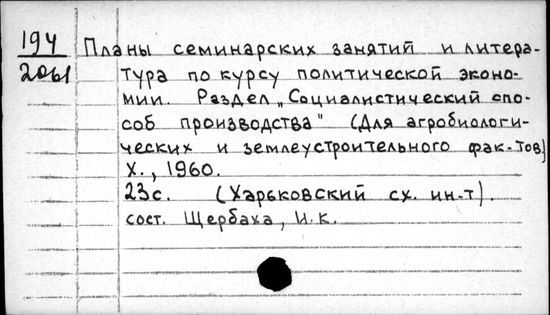 194
2061
Планы семинарских занятий и литера-
тура по курсу политической эконо-
мии. Раздел „Социалистический спо-
соб производства" (Для агробиологи-
ческих и землеустроительного фак-тов)
Х., 1960.
23с. (Харьковский сх. ин-т).
сост. Щербаха, И.К.